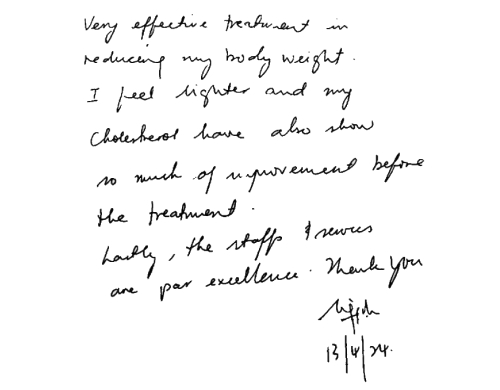 Very effective treatment in
reducing my body weight.
I feel lighter and my
Cholestherol have also show
so much of improvement before
the treatment.
Lastly, the staffs & services
are par excellence. Thank you
13/4/24.